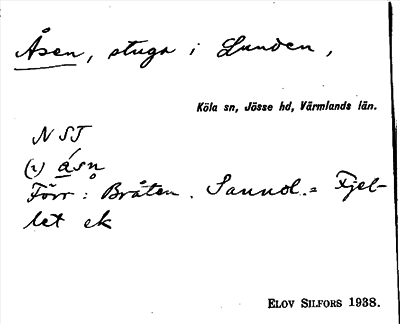 Åsen, stuga i Lunden,
Köla sn, Jösse hd, Värmlands län.
NST
(2) åsn̥
Förr: Bråten. Sannol. = Fjel-
let ek
ELOV SILFORS 1938.